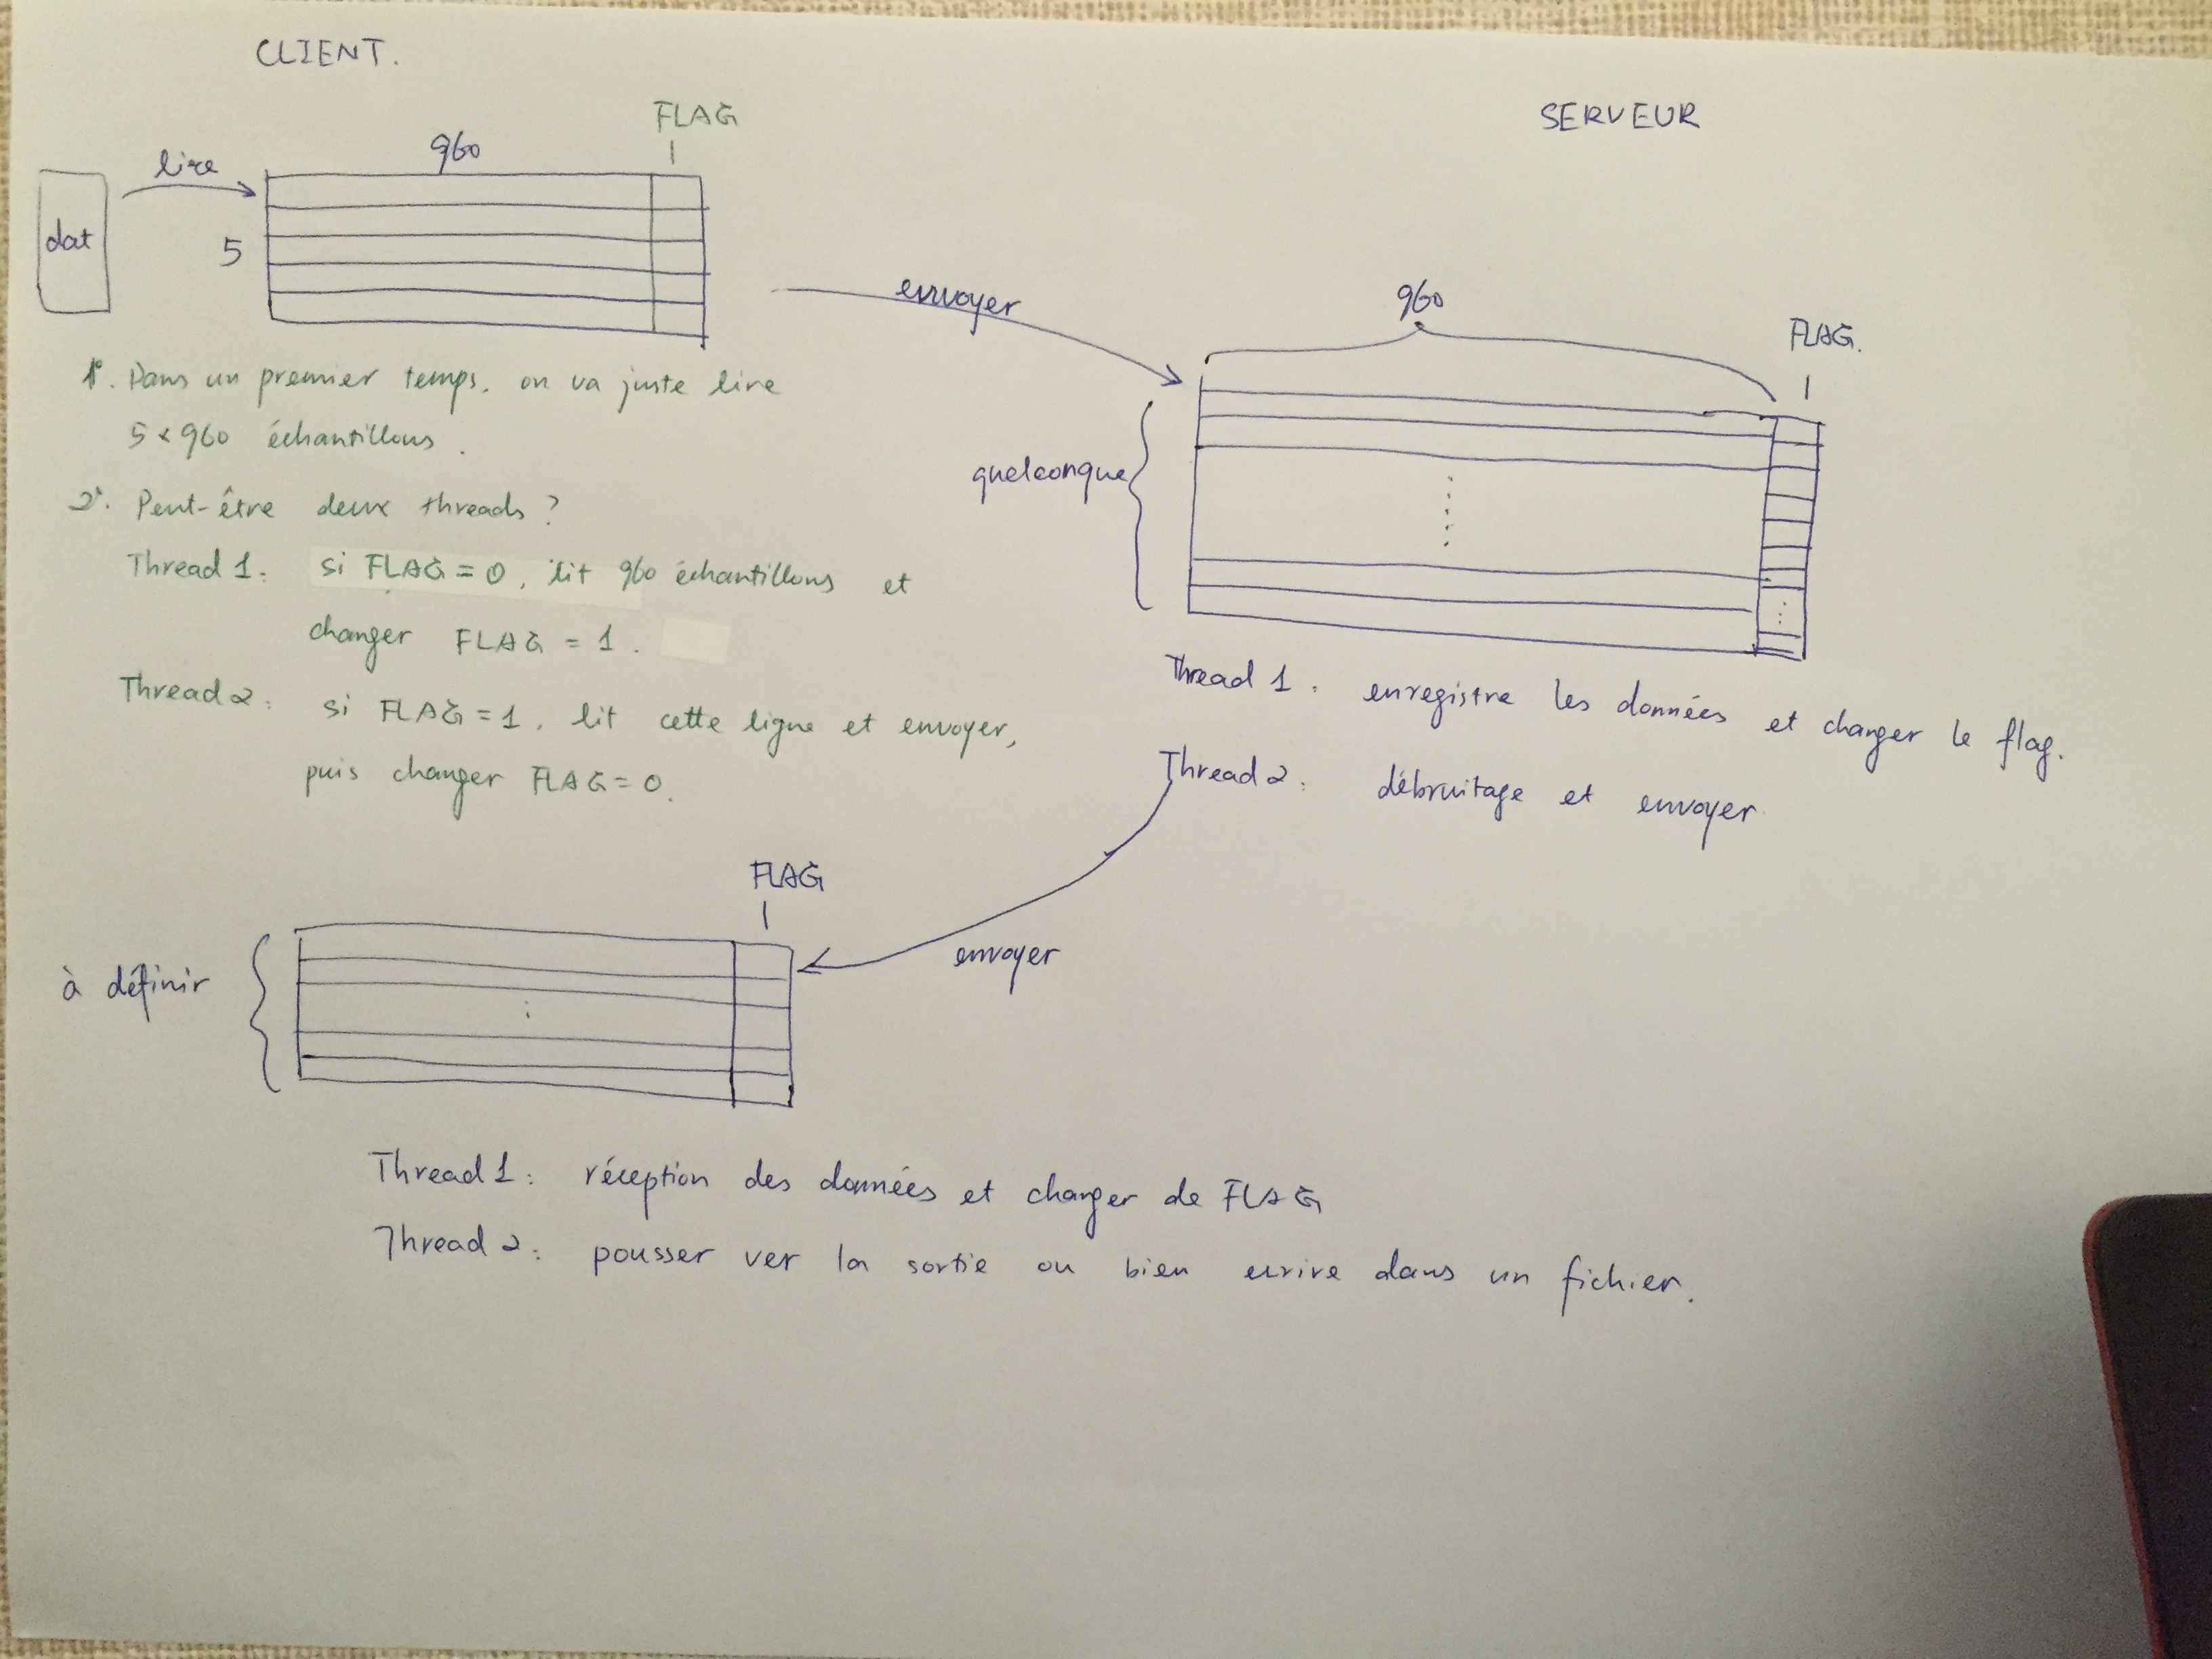 CLIENT.
SERVEUR
FLAG
960
lire
dat
5
envoyer
960
FLAG.
quelconque
1°. Dans un premier temps, on va juste lire
5 x 960 échantillons.
2°. Peut-être deux threads ?
Thread 1: si FLAG = 0, lit 960 échantillons et
changer FLAG = 1.
Thread 2: si FLAG = 1, lit cette ligne et envoyer,
puis changer FLAG = 0.
Thread 1: enregistre les données et changer le flag.
Thread 2: débruitage et envoyer
FLAG
envoyer
à définir
Thread 1: réception des données et changer de FLAG
Thread 2: pousser ver la sortie ou bien ecrire dans un fichier.